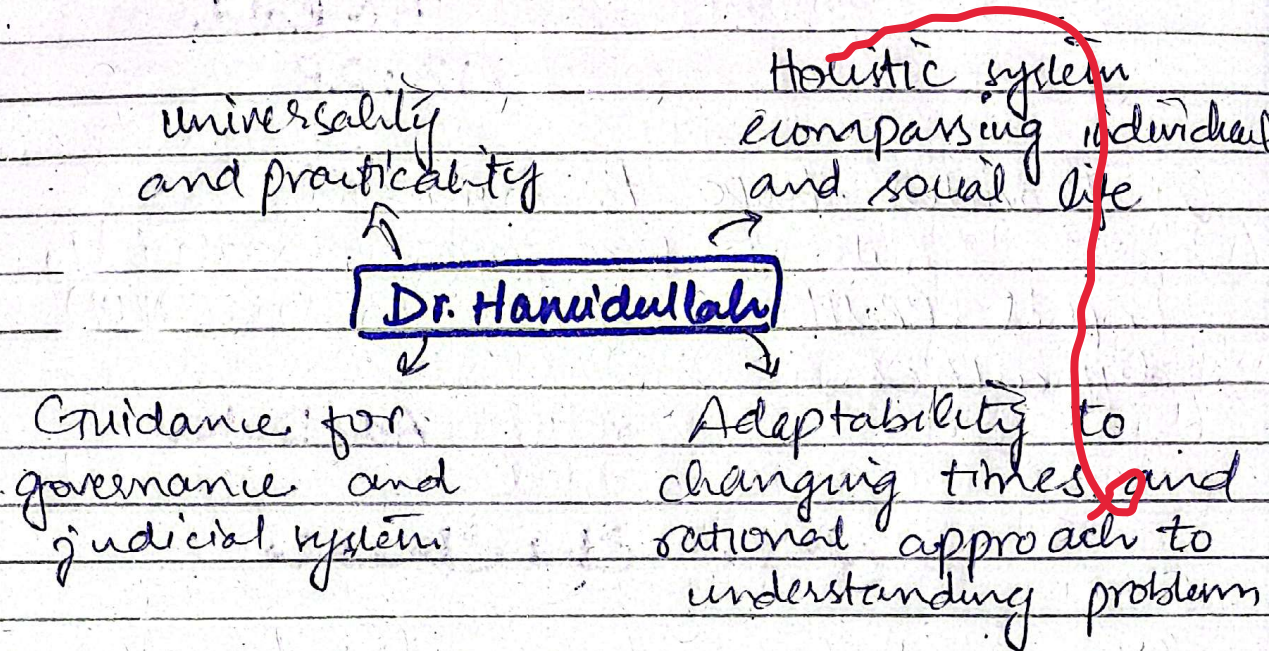 Universality
and practicality
Holistic system
ecompassing individual
and social life
Dr. Hamidullah
Guidance for
governance and
judicial system
Adaptability to
changing times and
rational approach to
understanding problem